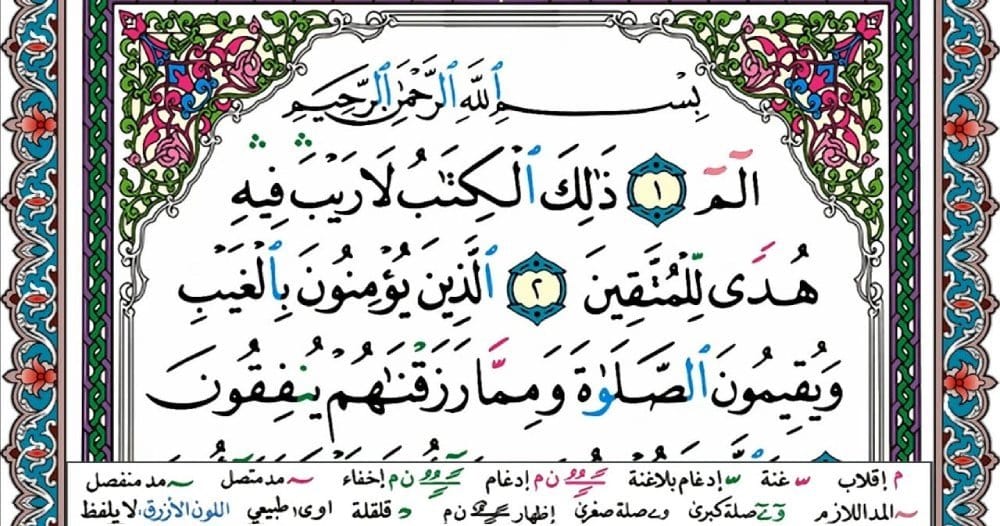 بِسْمِ ٱللَّهِ ٱلرَّحْمَٰنِ ٱلرَّحِيمِ
الٓمٓ ١ ذَٰلِكَ ٱلْكِتَٰبُ لَا رَيْبَ فِيهِ
هُدًى لِّلْمُتَّقِينَ ٢ ٱلَّذِينَ يُؤْمِنُونَ بِٱلْغَيْبِ
وَيُقِيمُونَ ٱلصَّلَوٰةَ وَمِمَّا رَزَقْنَٰهُمْ يُنفِقُونَ
م إقلاب غنة إدغام بلاغنة ن م إدغام ن م إخفاء مد متصل مد منفصل
المد اللازم صلة كبرى صلة صغرى إظهار ن م قلقلة اوى ا طبيعي اللون الأزرق: لا يلفظ